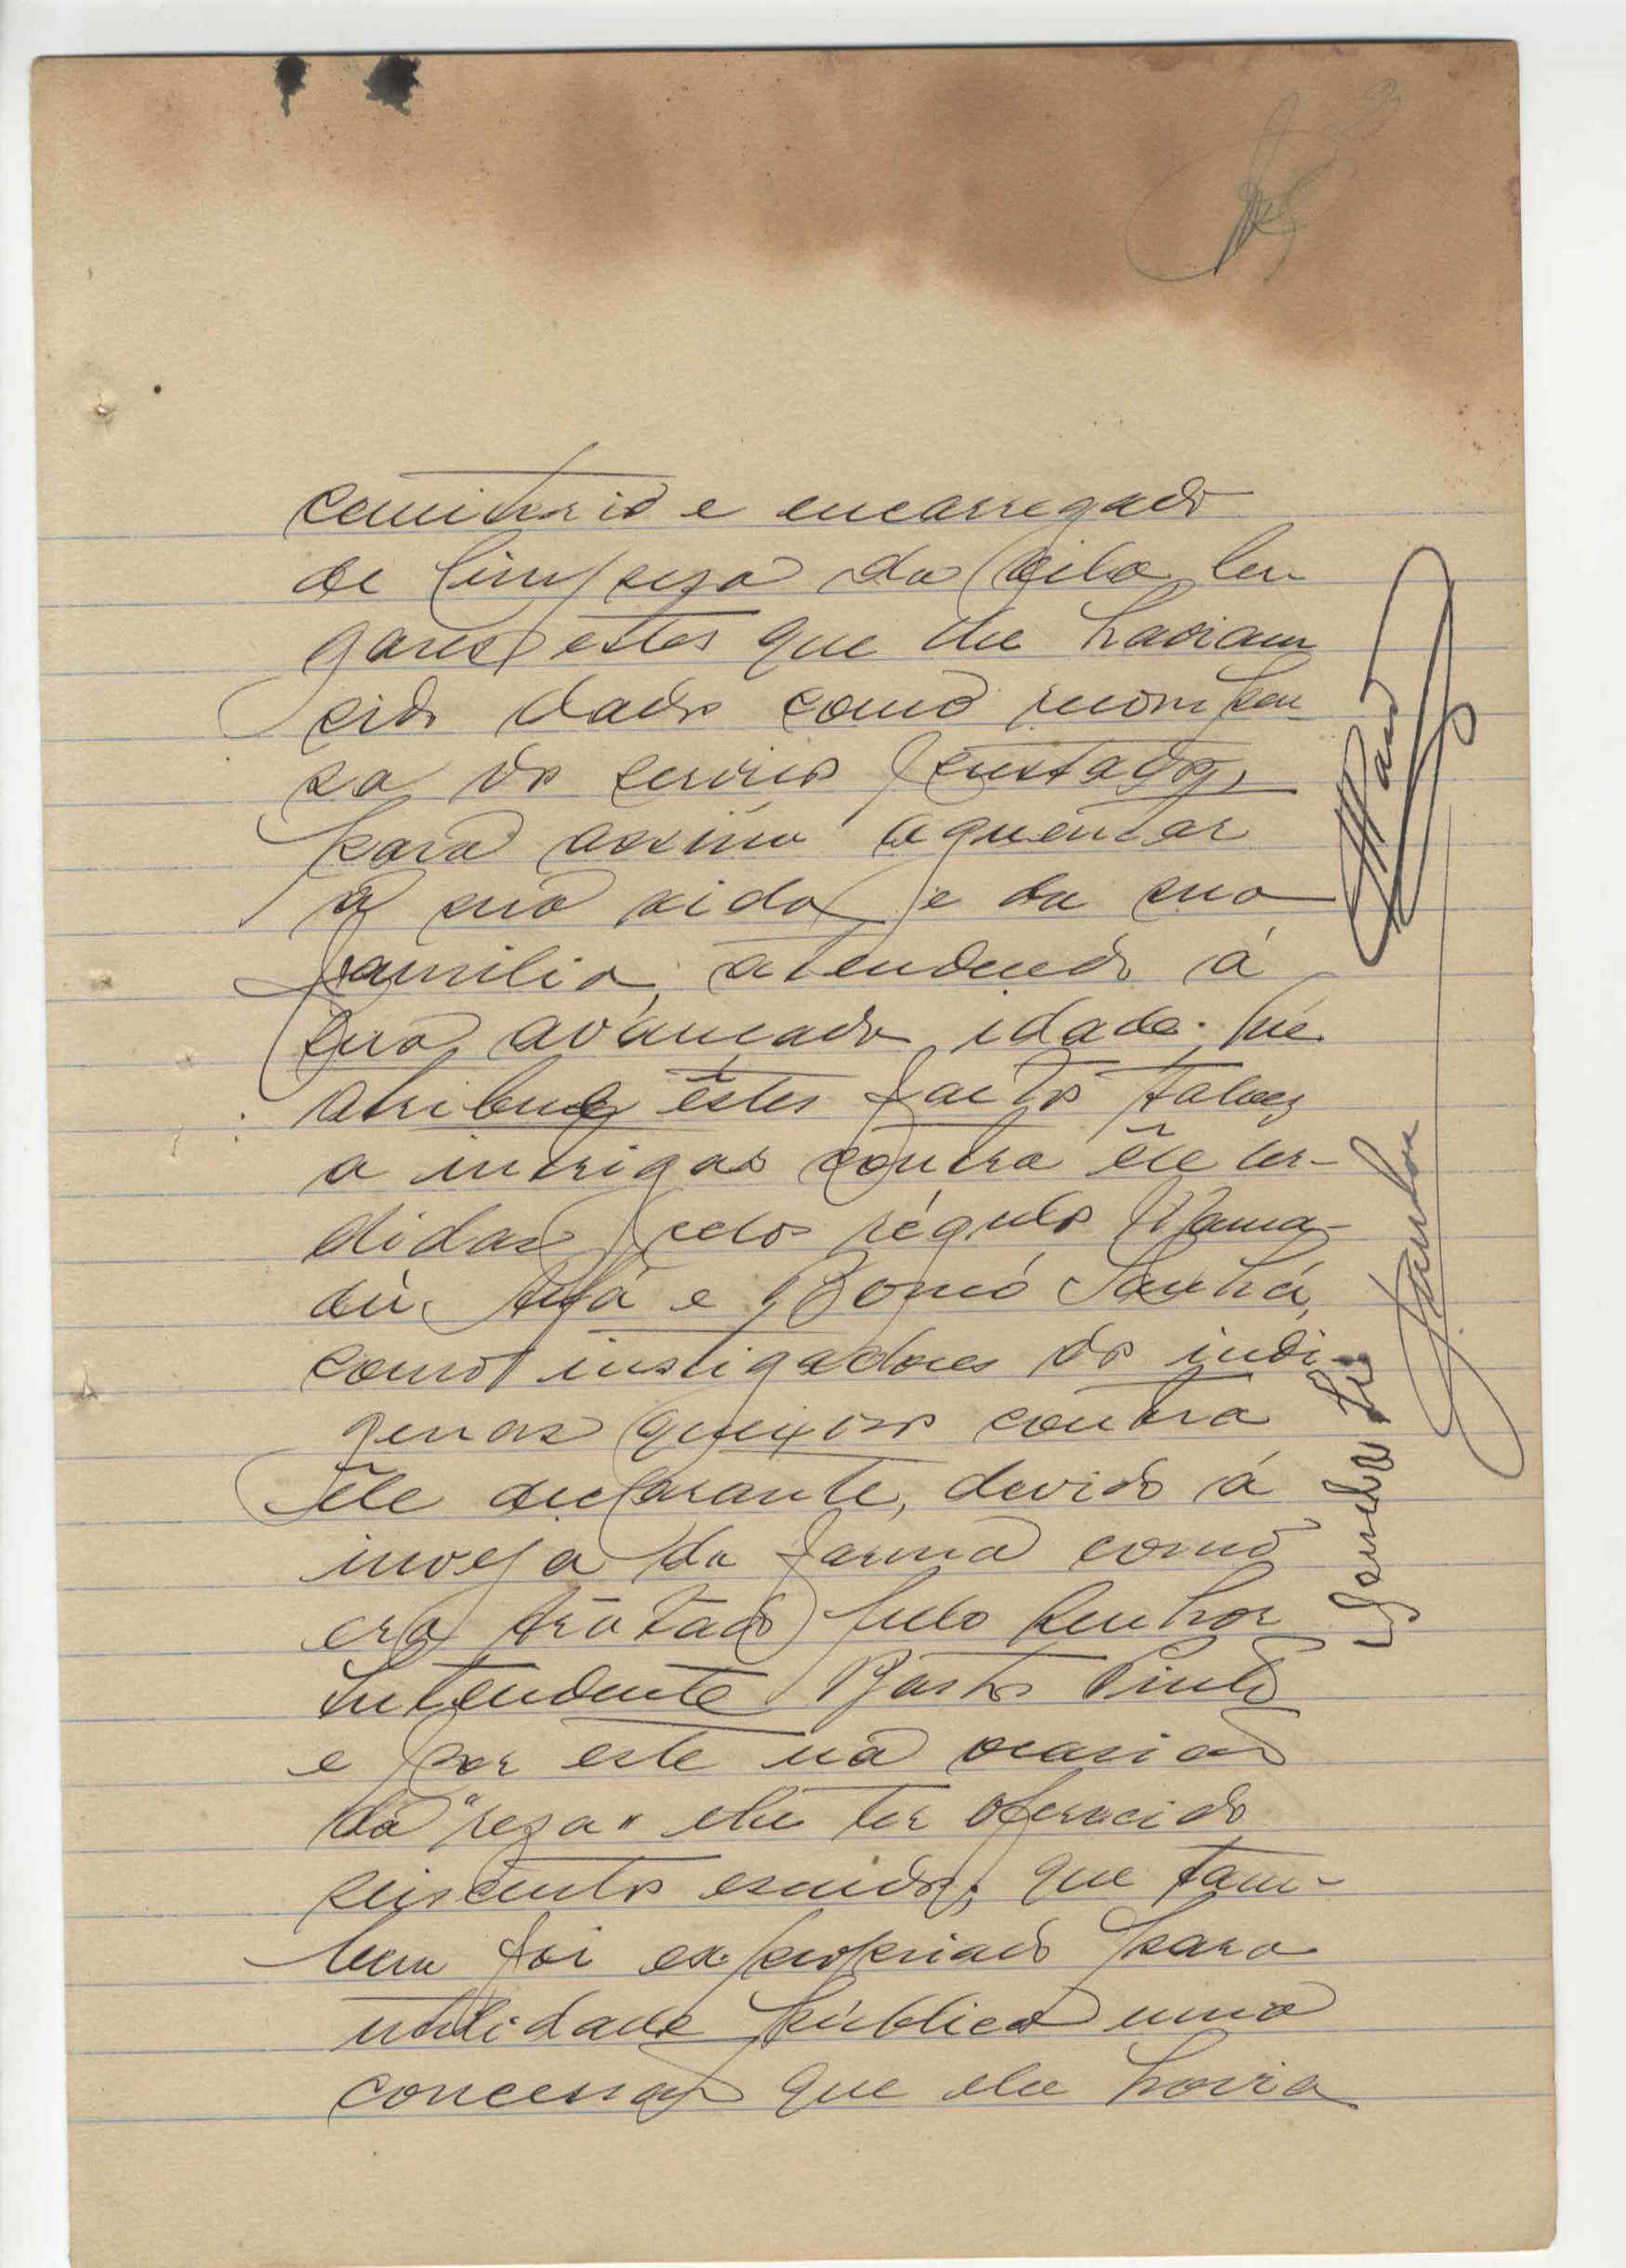 cemiterio e encarregado
de limpeza da vila lu-
gares estes que lhe haviam
sido dados como recompen-
sa dos serviços prestados,
para assim aguentar
a sua vida e da sua
familia, atendendo á
sua avançada idade. Que
atribue êstes factos talvez
a intrigas contra êle ur-
didas pelos régulos Mama-
dú Alfá e Bonco Sanhá,
como instigadores dos indi-
genas queixosos contra
êle declarante, devido á
inveja da forma como
era tratado pelo Senhor
Intendente Bastos Pinto
e por este na ocasião
da "reza" lhe ter oferecido
seiscentos escudos, que tam-
bem foi expropriado para
utilidade pública uma
concessão que lhe havia